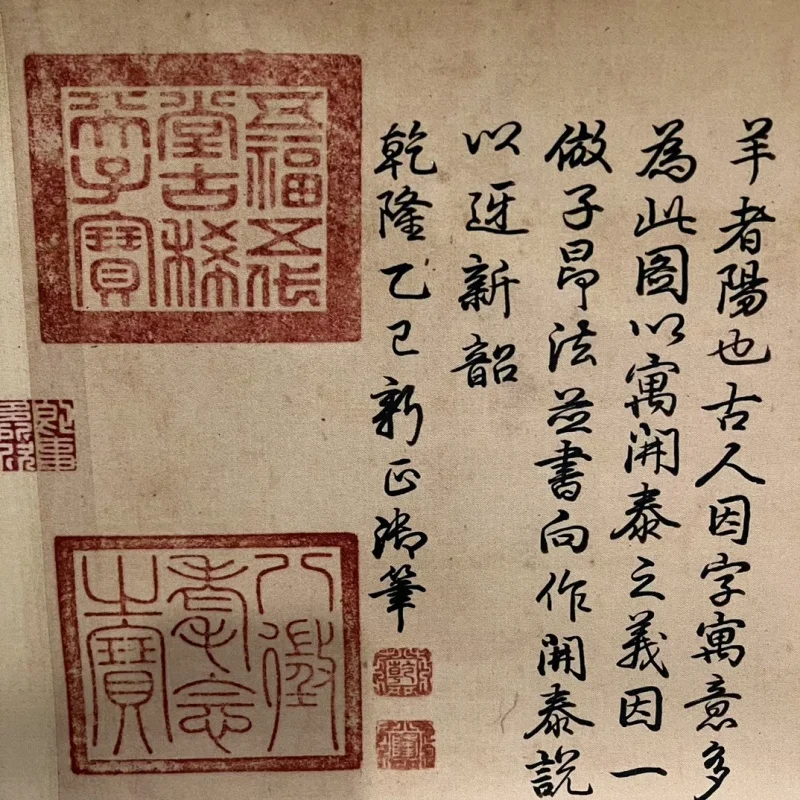 羊者陽也古人因字寓意多
為此圖以寓開泰之義因一
倣子昂法並書向作開泰說
以迓新韶
乾隆乙巳新正御筆
五福五代
堂古稀
天子寶
八徵
耄念
之寶
即事
多所欣